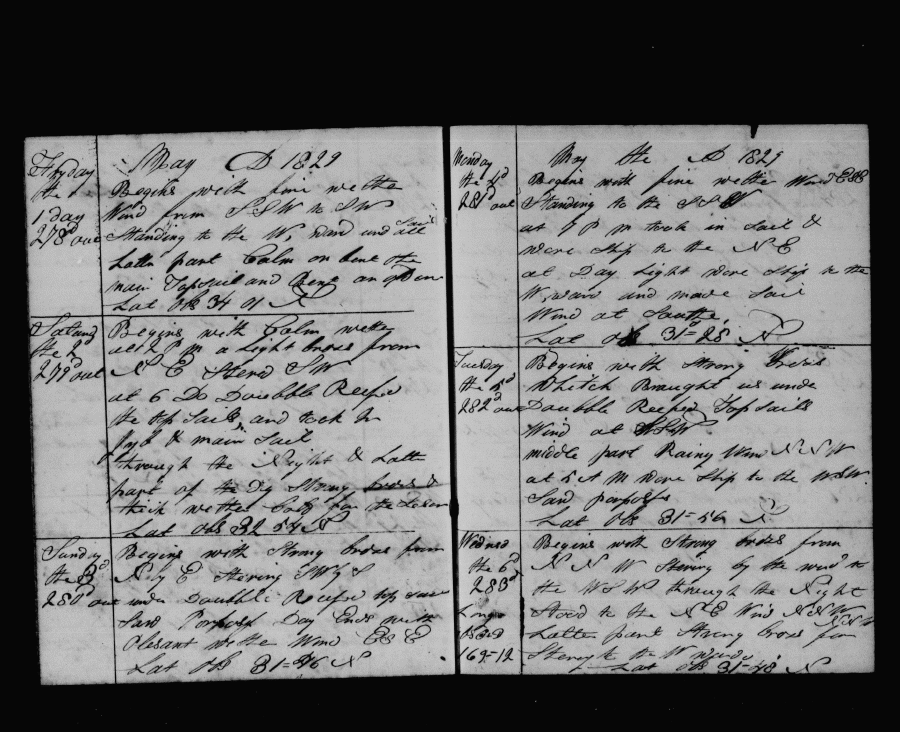 May D 1829
Fryday
the 1
1 day
278d out
Begins with fine wethe
Wind from S.S.W to SW
Standing to the W,ward und all Sail
Latth part Calm on bent the
main Topsail and Bent an
Lat obs 34 01 N
the 2d
279d out
Begins with Calm wethe
att 2 P m a Light brese from
N E Sterd SW
at 6 Do Doubble Reefd
the top Sails, and tock In
Jyb & main Sail
through the Night & Latt
part of the Dy Strong breses &
thick wether
Lat obs 32 54 N
Sunday
the 3d
280d out
Begins with Strong breses from
N by E Stering SW by S
under Doubble Reefd top sails
Day Ends with
Plesant wethe Wind E S E
Lat obs 31=36 N
May the D 1829
Monday
the 4d
281d out
Begins with fine wethe Wind ESE
Standing to the S S W
at 7 P m tock in Sail &
were Ship to the N E
at Day Light were Ship to the
W,ward and made Sail
Wind at Southe
Lat obs 31=28 N
Tuesday
the 5d
282d out
Begins with Strong breses
Whitch Braught us unde
Doubble Reefed Topsaills
Wind at WSW
middle part Rainy Wind N N W
at 5 A M were Ship to the WSW
Lat obs 31=56 N
Wednesd
the 6d
283d
Longe
169=12
Begins with Strong breses from
N N W Stering by the wind to
the W S W through the Night
Sterd to the N E Wind N N W
Latte part Strong brese from N N W
Stering to the W ward
Lat obs 31=48 N